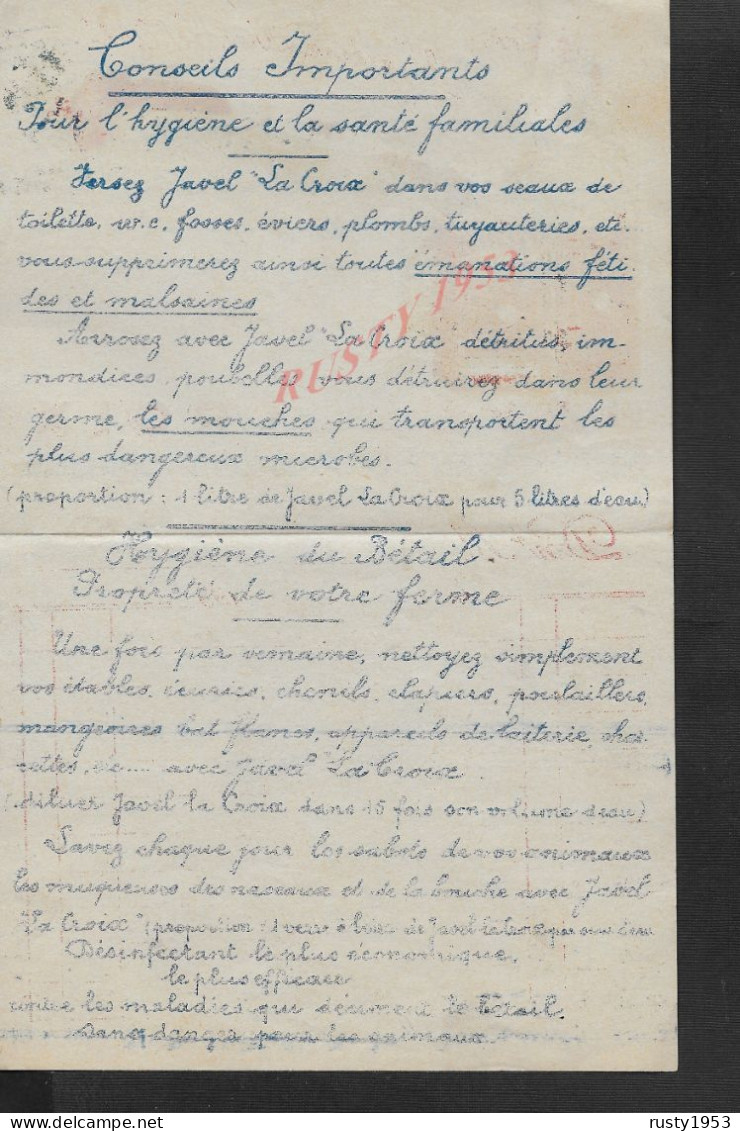 Conseils Importants
Pour l'hygiène et la santé familiales
Versez Javel "La Croix" dans vos seaux de
toilette, w.c, fosses, éviers, plombs, tuyauteries, etc.
vous supprimerez ainsi toutes émanations féti-
des et malsaines
Arrosez avec Javel "La Croix" détritus, im-
mondices, poubelles vous détruirez dans leur
germe, les mouches qui transportent les
plus dangereux microbes.
(proportion : 1 litre de Javel La Croix pour 5 litres d'eau)
Hygiène du Bétail.
Propreté de votre ferme
Une fois par semaine, nettoyez simplement
vos étables, écuries, chenils, clapiers, poulaillers,
mangeoires bat flancs, appareils de laiterie, char-
rettes, etc.... avec Javel "La Croix.
(diluer Javel la Croix dans 15 fois son volume d'eau)
Lavez chaque jour les sabots de vos animaux
les muqueuses des naseaux et de la bouche avec Javel
"La Croix" (proportion : 1 verre à de Javel La Croix par d'eau
Désinfectant le plus économique,
le plus efficace
contre les maladies qui déciment le bétail.
Sans danger pour les animaux.
RUSTY 1953
rusty1953